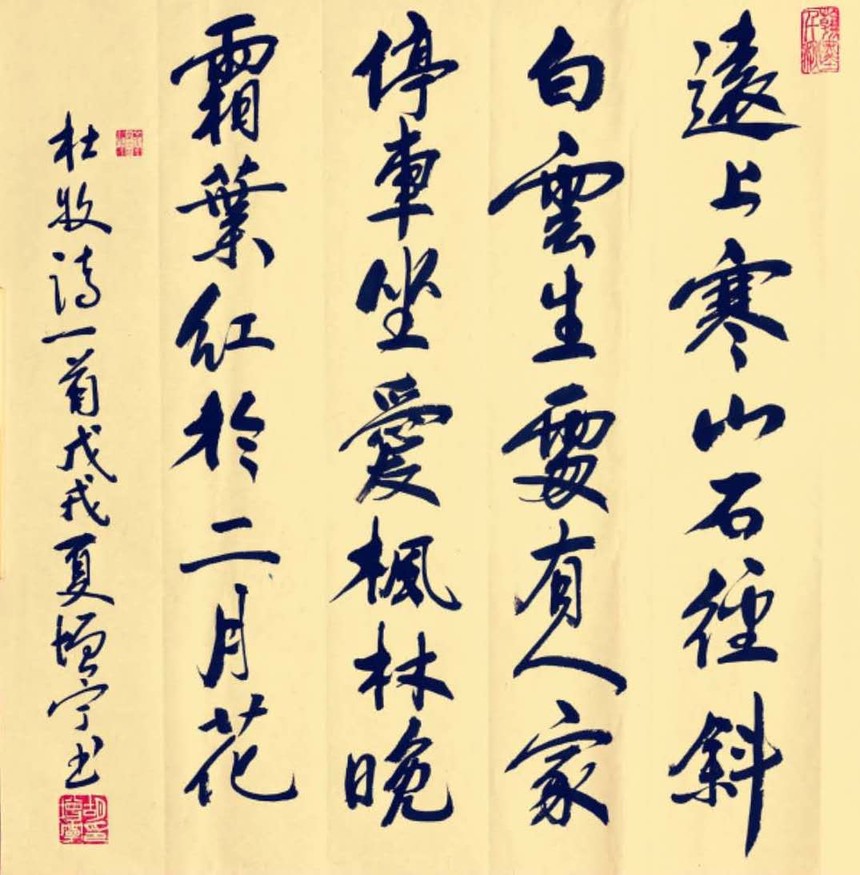 遠上寒山石徑斜
白雲生處有人家
停車坐愛楓林晚
霜葉紅於二月花
杜牧詩一首戊戌夏增寧书